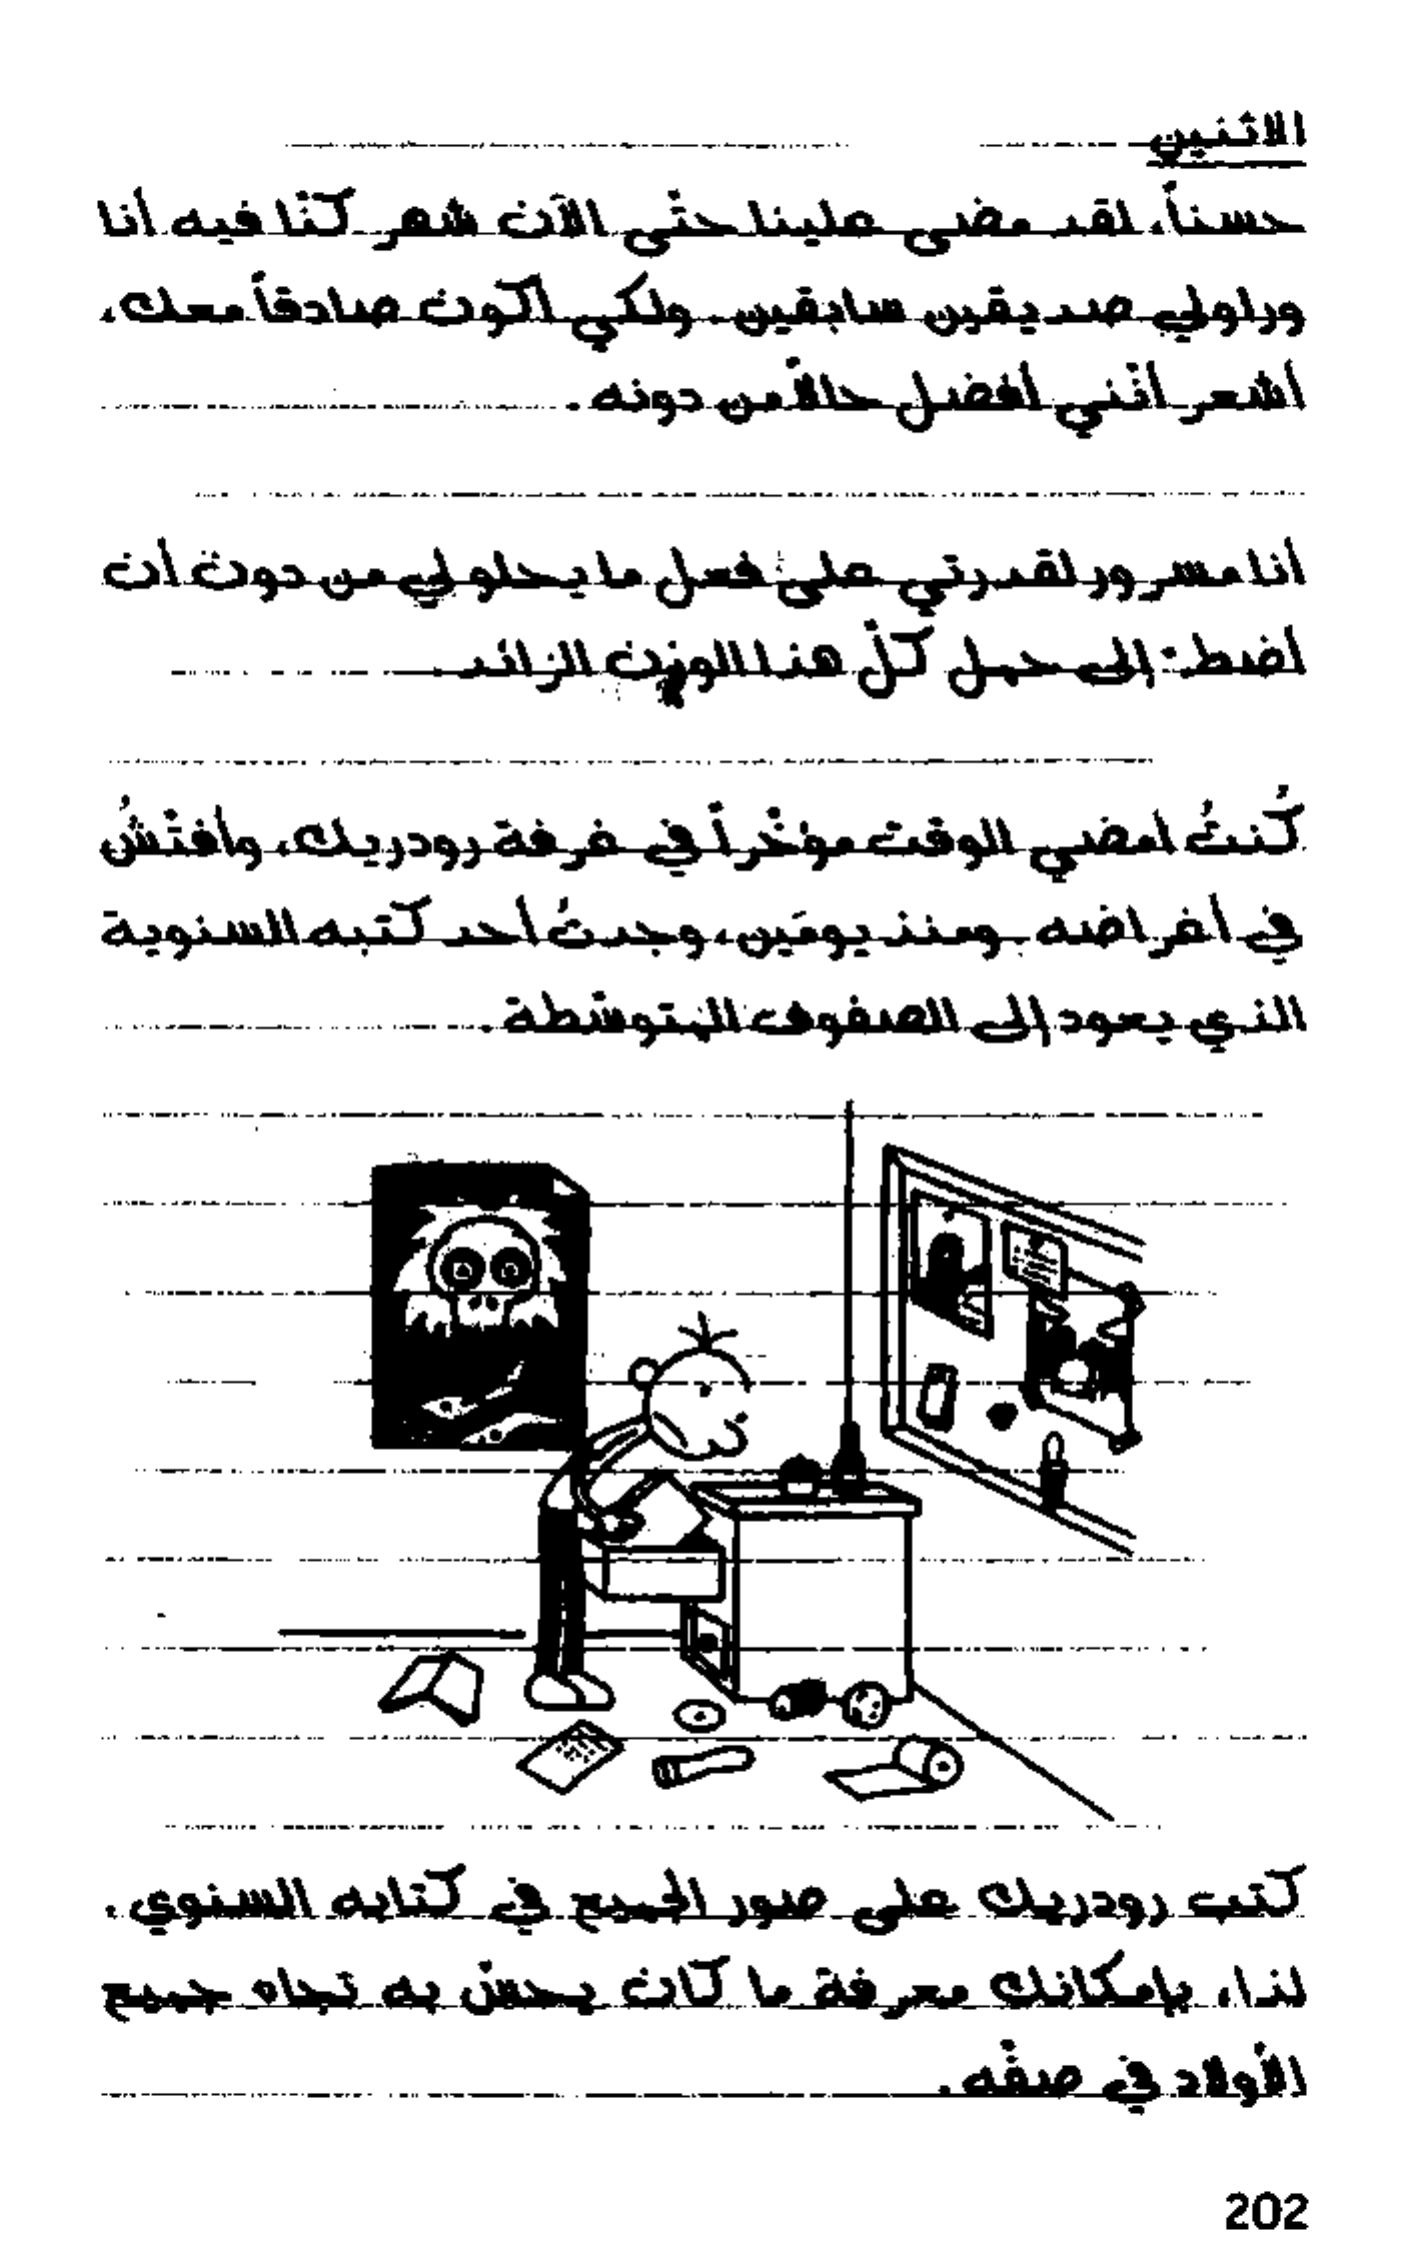 الاثنين
حسناً، لقد مضى علينا حتّى الآن شهر كنّا فيه أنا
وراولي صديقين سابقين. ولكي أكون صادقاً معك،
أشعر أنّني أفضل حالاً من دونه.
أنا مسرور لقدرتي على فعل ما يحلو لي من دون أن
أضطر إلى حمل كلّ هذا الوزن الزائد.
كُنتُ أمضي الوقت مؤخّراً في غرفة رودريك، وأفتّشُ
في أغراضه. ومنذ يومَين، وجدتُ أحد كتبه السنوية
الذي يعود إلى الصفوف المتوسّطة.
كتب رودريك على صور الجميع في كتابه السنوي.
لذا، بإمكانك معرفة ما كان يحسّ به تجاه جميع
الأولاد في صفّه.
202